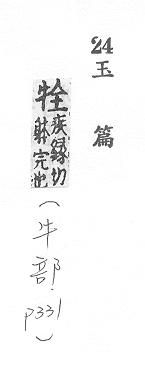 24 玉篇
牷疾縁切
躰完也
（牛部．P331）